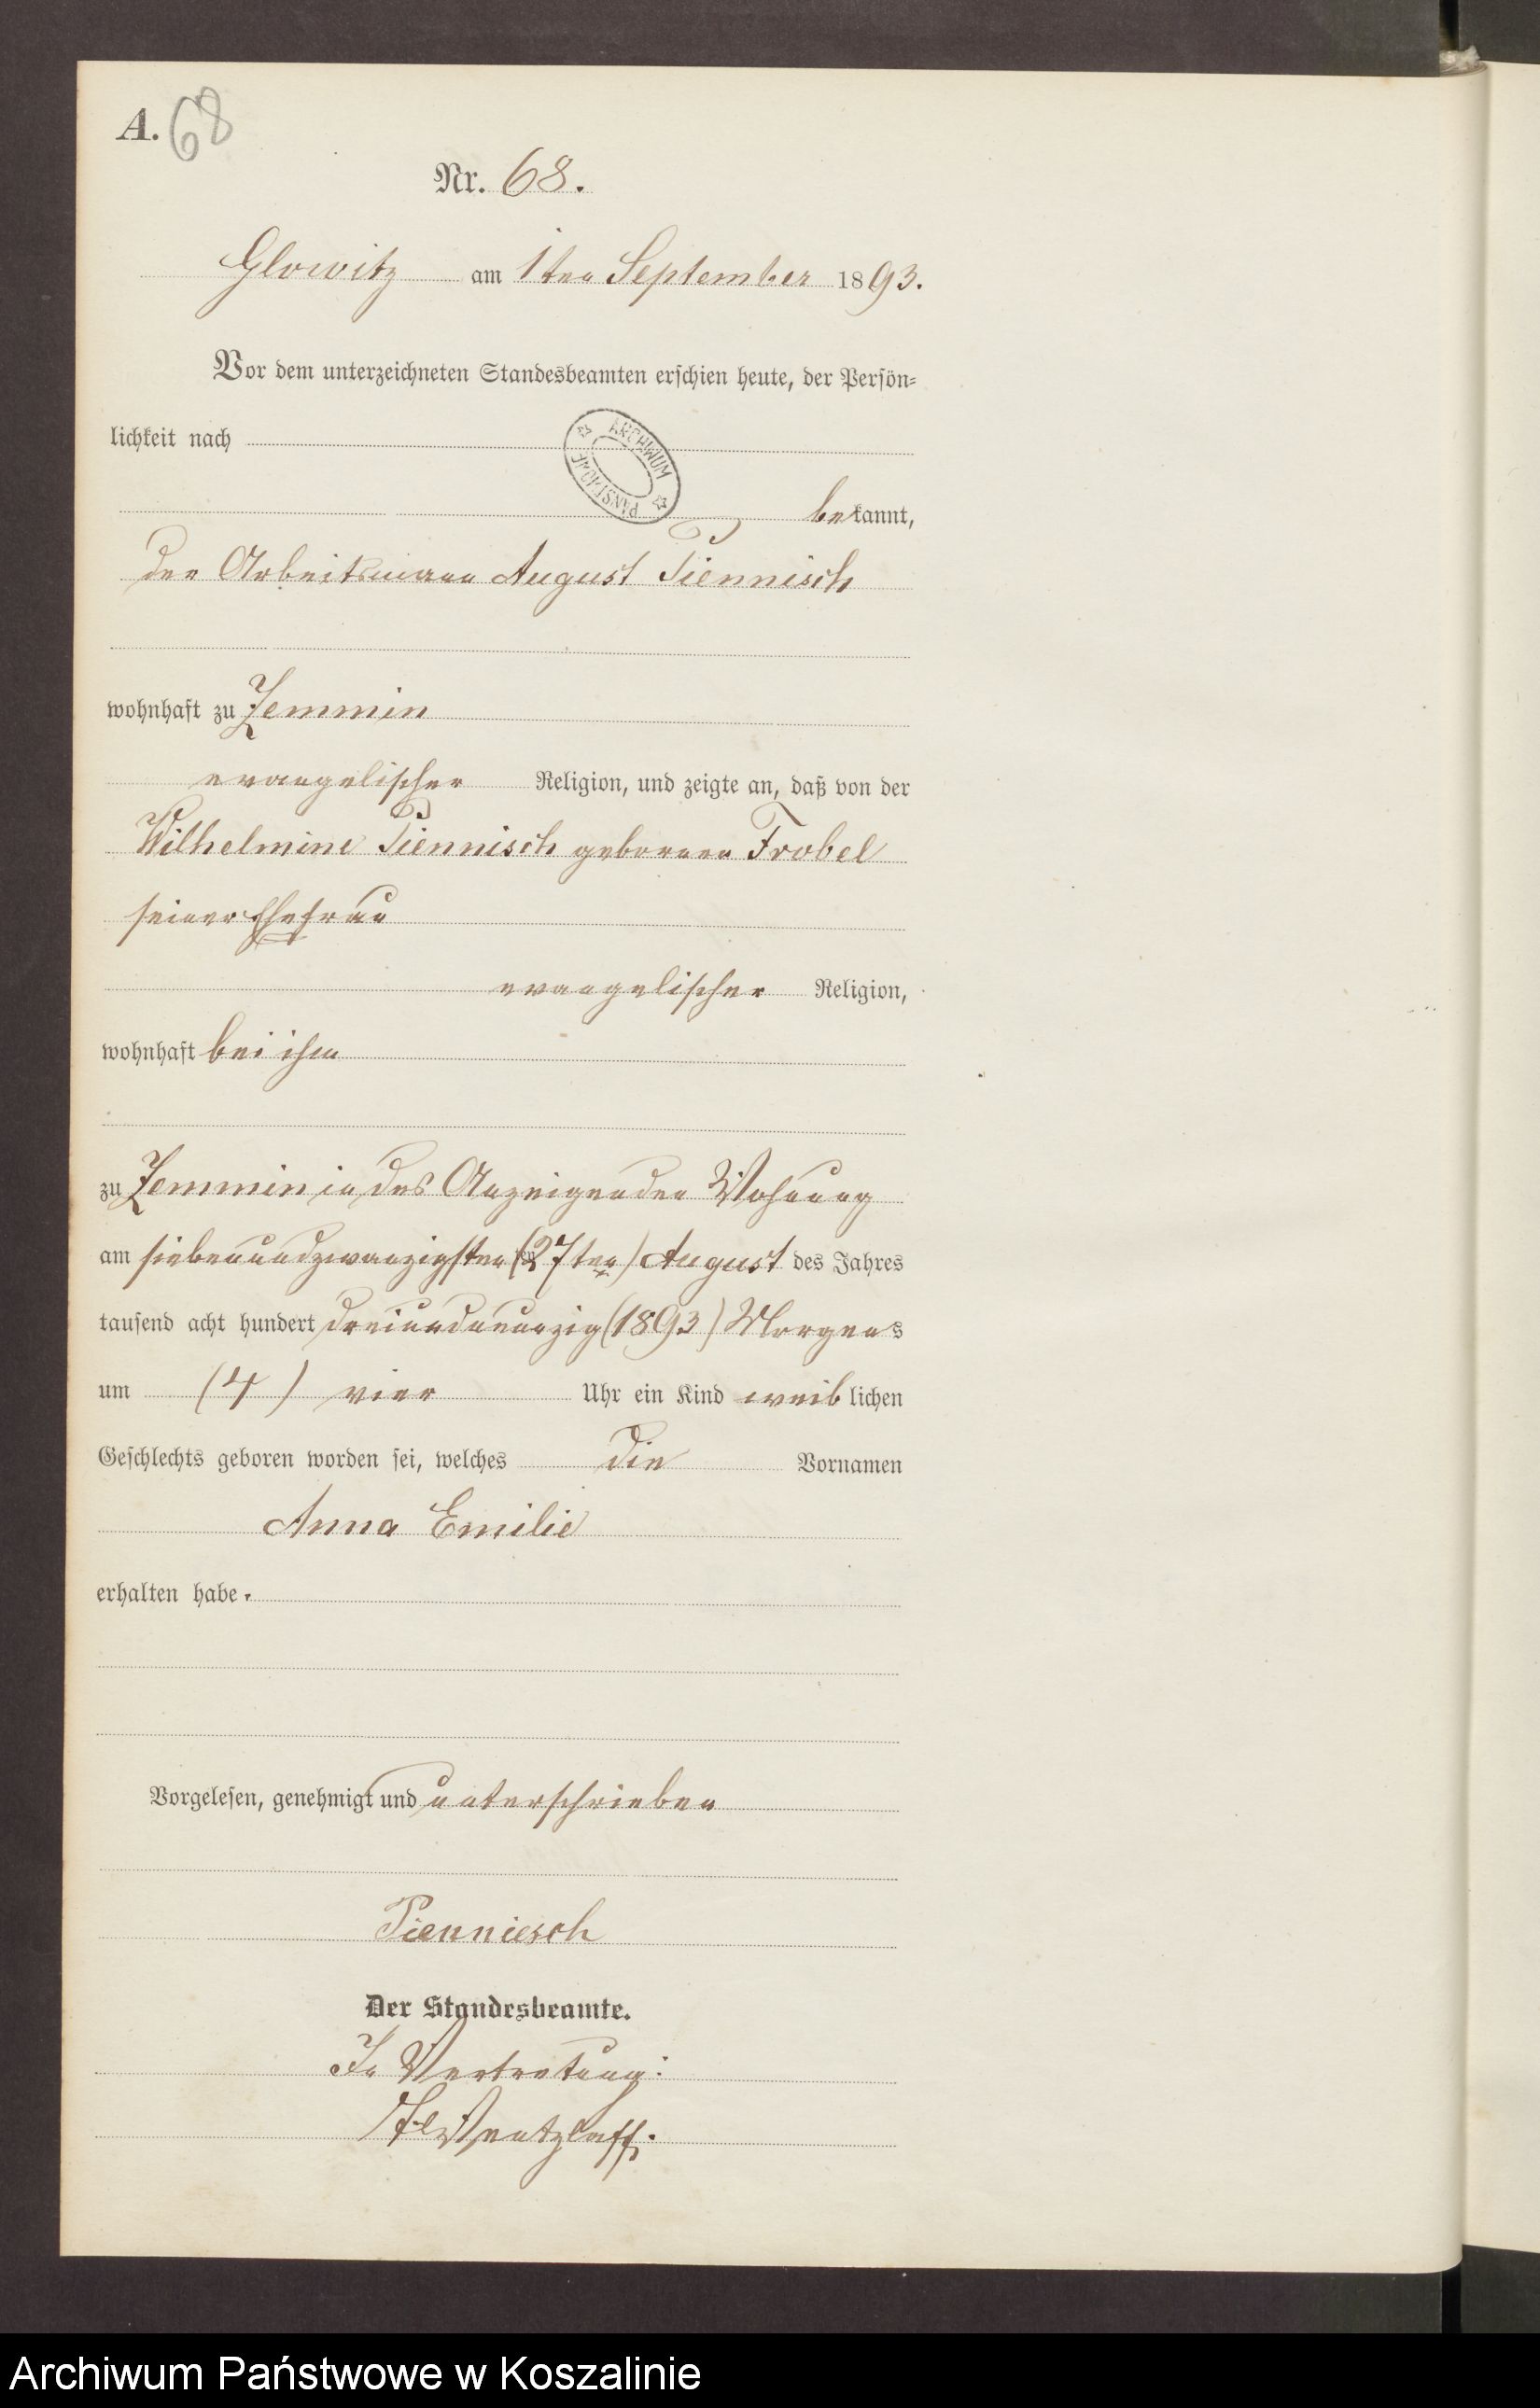 A. 68
Nr. 68.
Glowitz am 1ten September 1893.
Vor dem unterzeichneten Standesbeamten erschien heute, der Persön-
lichkeit nach
ARCHIWUM PAŃSTWOWE
bekannt,
der Arbeitsmann August Piennisch
wohnhaft zu Zemmin
evangelischer Religion, und zeigte an, daß von der
Wilhelmine Piennisch geborenen Frobel
seiner Ehefrau
evangelischer Religion,
wohnhaft bei ihm
zu Zemmin in des Anzeigenden Wohnung
am siebenundzwanzigsten (27ten) August des Jahres
tausend acht hundert dreiundneunzig (1893) Morgens
um (4) vier Uhr ein Kind weiblichen
Geschlechts geboren worden sei, welches die Vornamen
Anna Emilie
erhalten habe.
Vorgelesen, genehmigt und unterschrieben
Pienniesch
Der Standesbeamte.
In Vertretung:
Wentzlaff.
Archiwum Państwowe w Koszalinie